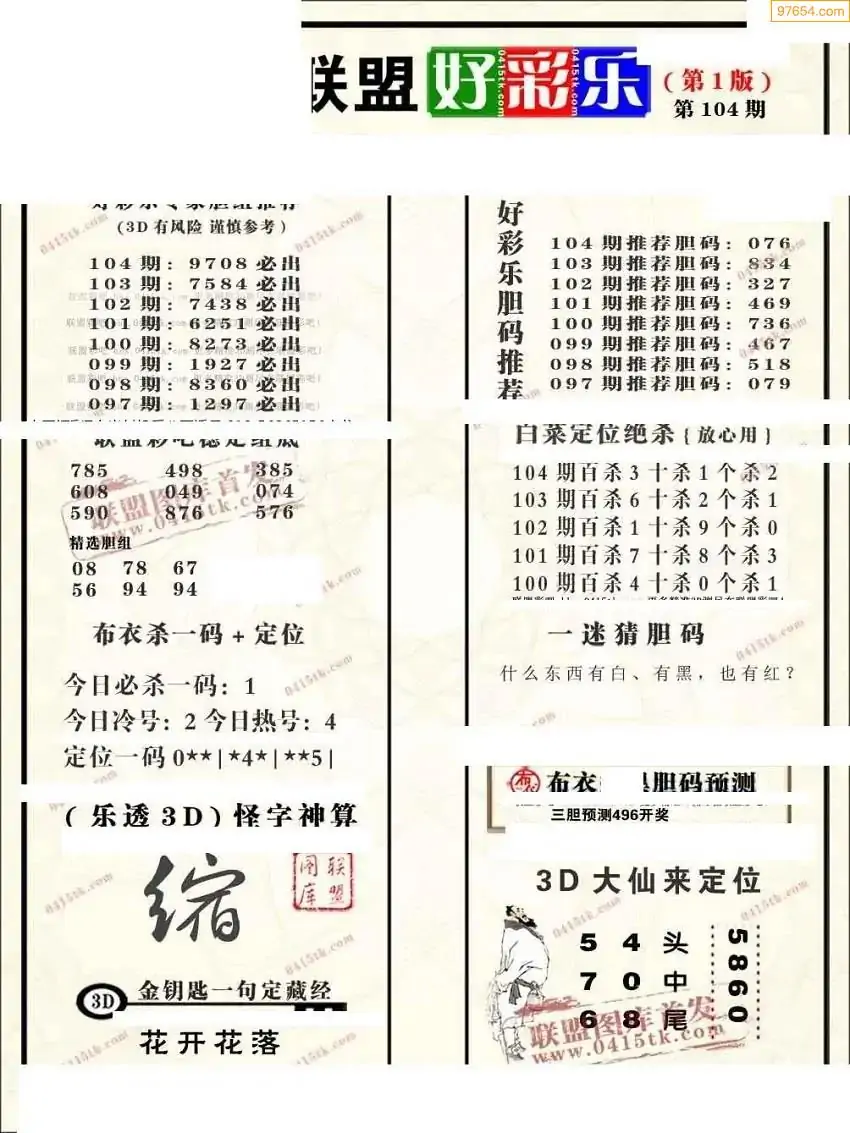 97654.com
联盟好彩乐
(第1版)
第104期
好彩乐专家胆组推荐
(3D有风险 谨慎参考)
104期：9708必出
103期：7584必出
102期：7438必出
101期：6251必出
100期：8273必出
099期：1927必出
098期：8360必出
097期：1297必出
好彩乐胆码推荐
104期推荐胆码：076
103期推荐胆码：834
102期推荐胆码：327
101期推荐胆码：469
100期推荐胆码：736
099期推荐胆码：467
098期推荐胆码：518
097期推荐胆码：079
785 498 385
608 049 074
590 876 576
精选胆组
08 78 67
56 94 94
白菜定位绝杀{放心用}
104期百杀3十杀1个杀2
103期百杀6十杀2个杀1
102期百杀1十杀9个杀0
101期百杀7十杀8个杀3
100期百杀4十杀0个杀1
布衣杀一码+定位
今日必杀一码：1
今日冷号：2 今日热号：4
定位一码0**|*4*|**5|
一迷猜胆码
什么东西有白、有黑，也有红？
(乐透3D)怪字神算
缩
联盟图库
3D
金钥匙一句定藏经
花开花落
布衣
胆码预测
三胆预测496开奖
3D大仙来定位
5 4 头
7 0 中
6 8 尾
5860
联盟图库首发
www.0415tk.com
0415tk.com